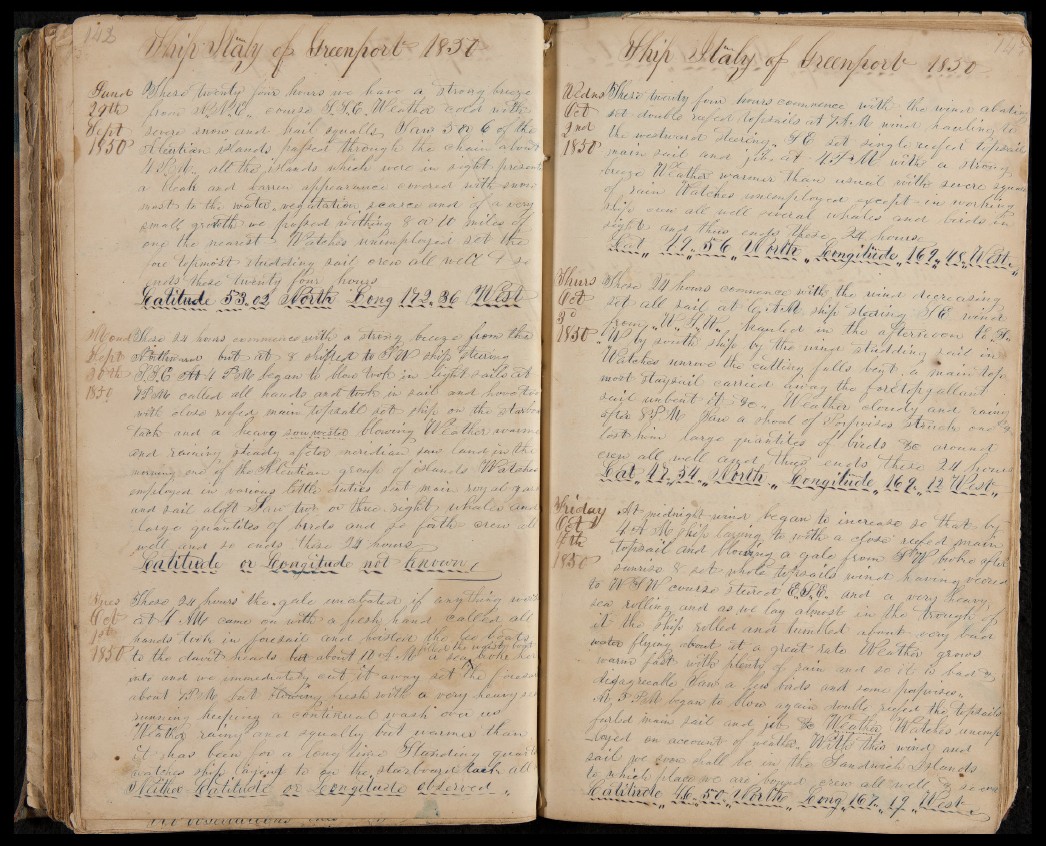 142
Ship Italy of Greenport 1850
Sund These twenty four hours we have a strong breeze
29th from N.N.E. course S.S.E. Weather cold with
Sept severe snow and hail squalls, Saw 5 or 6 of the
1850 Aleutian islands passed through the chain about
4 P.M. all the islands which were in sight present
a bleak and barren appearance covered with snow
most to the water, vegetation scarce and of a very
small growth we passed within 8 or 10 miles of
one the nearest Watches unemployed set the
fore topmost studding sail crew all well & so
ends these twenty four hours
Latitude 53.02 North Long 172.36 West
Mond These 24 hours commence with a strong breeze from the
Sept Northward but at 8 shifted to SW ship steering
30th S.S.E. At 4 P.M. began to blow took in light sails at
1850 7 P.M. called all hands and took in sail and hove to
with close reefed main topsail set ship on the starbo
tack and a heavy souwester blowing Weather warm
and raining steady after meridian saw land in the
morning one of the Aleutian group of islands Watches
employed in various little duties sent main royal yard
and sail aloft Saw two or three right whales and
large quantites of birds and so forth crew all
well and so ends these 24 hours
Latitude or Longitude not known
Tues These 24 hours the gale unabated if anything worse
Oct at 4 AM came on with a fresh hand called all
1st hands took in foresail and hoisted the lee boats
1850 to the davit heads but about 10 A.M. a sea broke her
into and we immediately cut it away set the foresail
about 7 P.M. but blowing fresh with a very heavy sea
running keeping a continual wash over us
Weather rainy and squally but warmer than
it has been for a long time Standing quarter
watches ship laying to on the starboard tack all
Neither Latitude or Longitude observed
Ship Italy of Greenport 1850
Wednes These twenty four hours commence with the wind abating
Oct set double reefed topsails at 7 A.M. wind hauling to
2nd the westward steering S.E. set single reefed topsails
1850 main sail and jib at 4 P.M. with a strong
breeze Weather warmer than usual with severe squalls
of rain Watches unemployed except in working
ship crew all well several whales and birds in
sight and thus ends these 24 hours
Lat 49.56 North Longitude 169.48 West
Thurs These 24 hours commence with the wind decreasing
Oct set all sail at 6 A.M. ship steering S.E. wind
3d from W.S.W. hauled in the afternoon to the
1850 W by south ship by the wind studding sail in
Watches unrove the cutting falls bent a main top
most staysail carried away the foretopgallant
sail unbent it &c. Weather cloudy and rainy
after 8 P.M. Saw a shoal of Porpoises struck one &
lost him large quantites of birds &c around
crew all well and thus ends these 24 hours
Lat 47.54 North Longitude 169.12 West
Friday At midnight wind began to increase so that by
Oct 4 A.M. ship laying to with a close reefed main
4th topsail and blowing a gale from SW broke after
1850 sunrise & set whole topsails wind having veered
to WSW course steered E.S.E. and a very heavy
sea rolling and as we lay almost in the trough of
it the ship rolled and tumbled about very bad
water flying about at a great rate Weather grows
warm fast with plenty of rain and so it is bad &
disagreeable Saw a few birds and some porpoises
At 5 P.M. began to blow again double reefed the topsails
furled main sail and jib &c Weather Watches unemp
loyed on account of weather. With this wind and
sail we soon shall be in the Sandwich Islands
to which place we are bound crew all well & so ends
Latitude 46.50 North Long 167.19 West